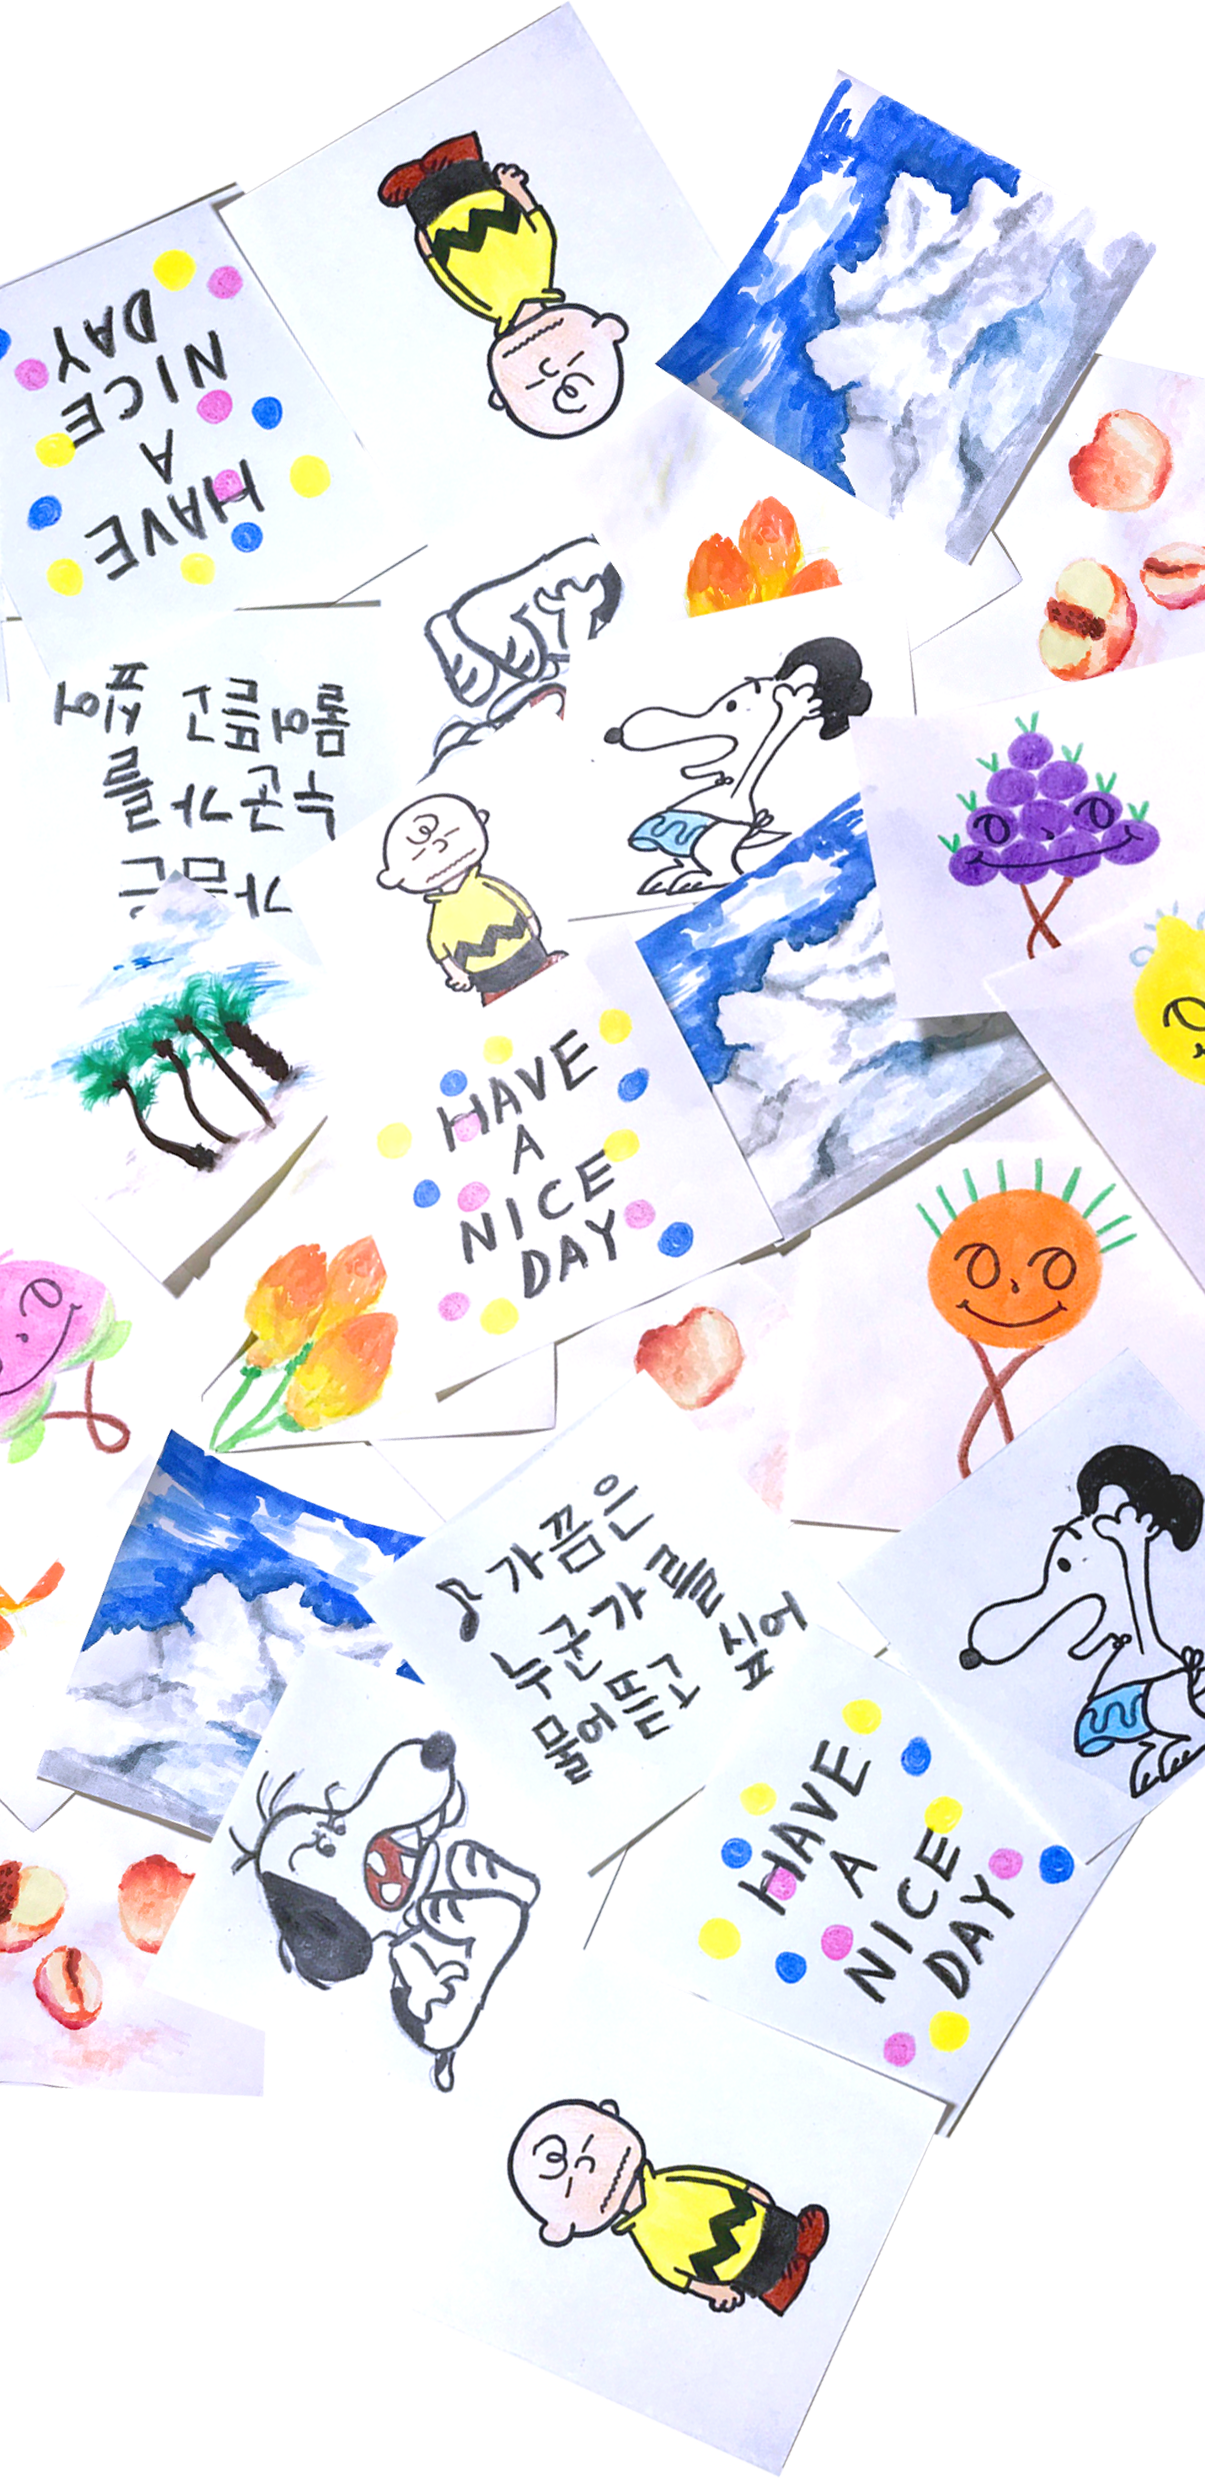 HAVE
A
NICE
DAY
가끔은
누군가를
물어뜯고 싶어
HAVE
A
NICE
DAY
♪가끔은
누군가를
물어뜯고 싶어
HAVE
A
NICE
DAY